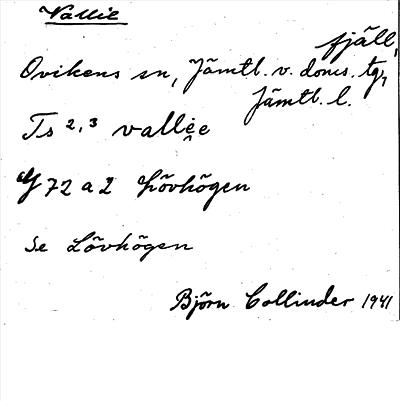 Vallie
fjäll,
Ovikens sn, Jämtl. v. doms. tg,
Jämtl. l.
Ts 2,3 vallẹe
Y 72 a 2 Lövhögen
Se Lövhögen
Björn Collinder 1941